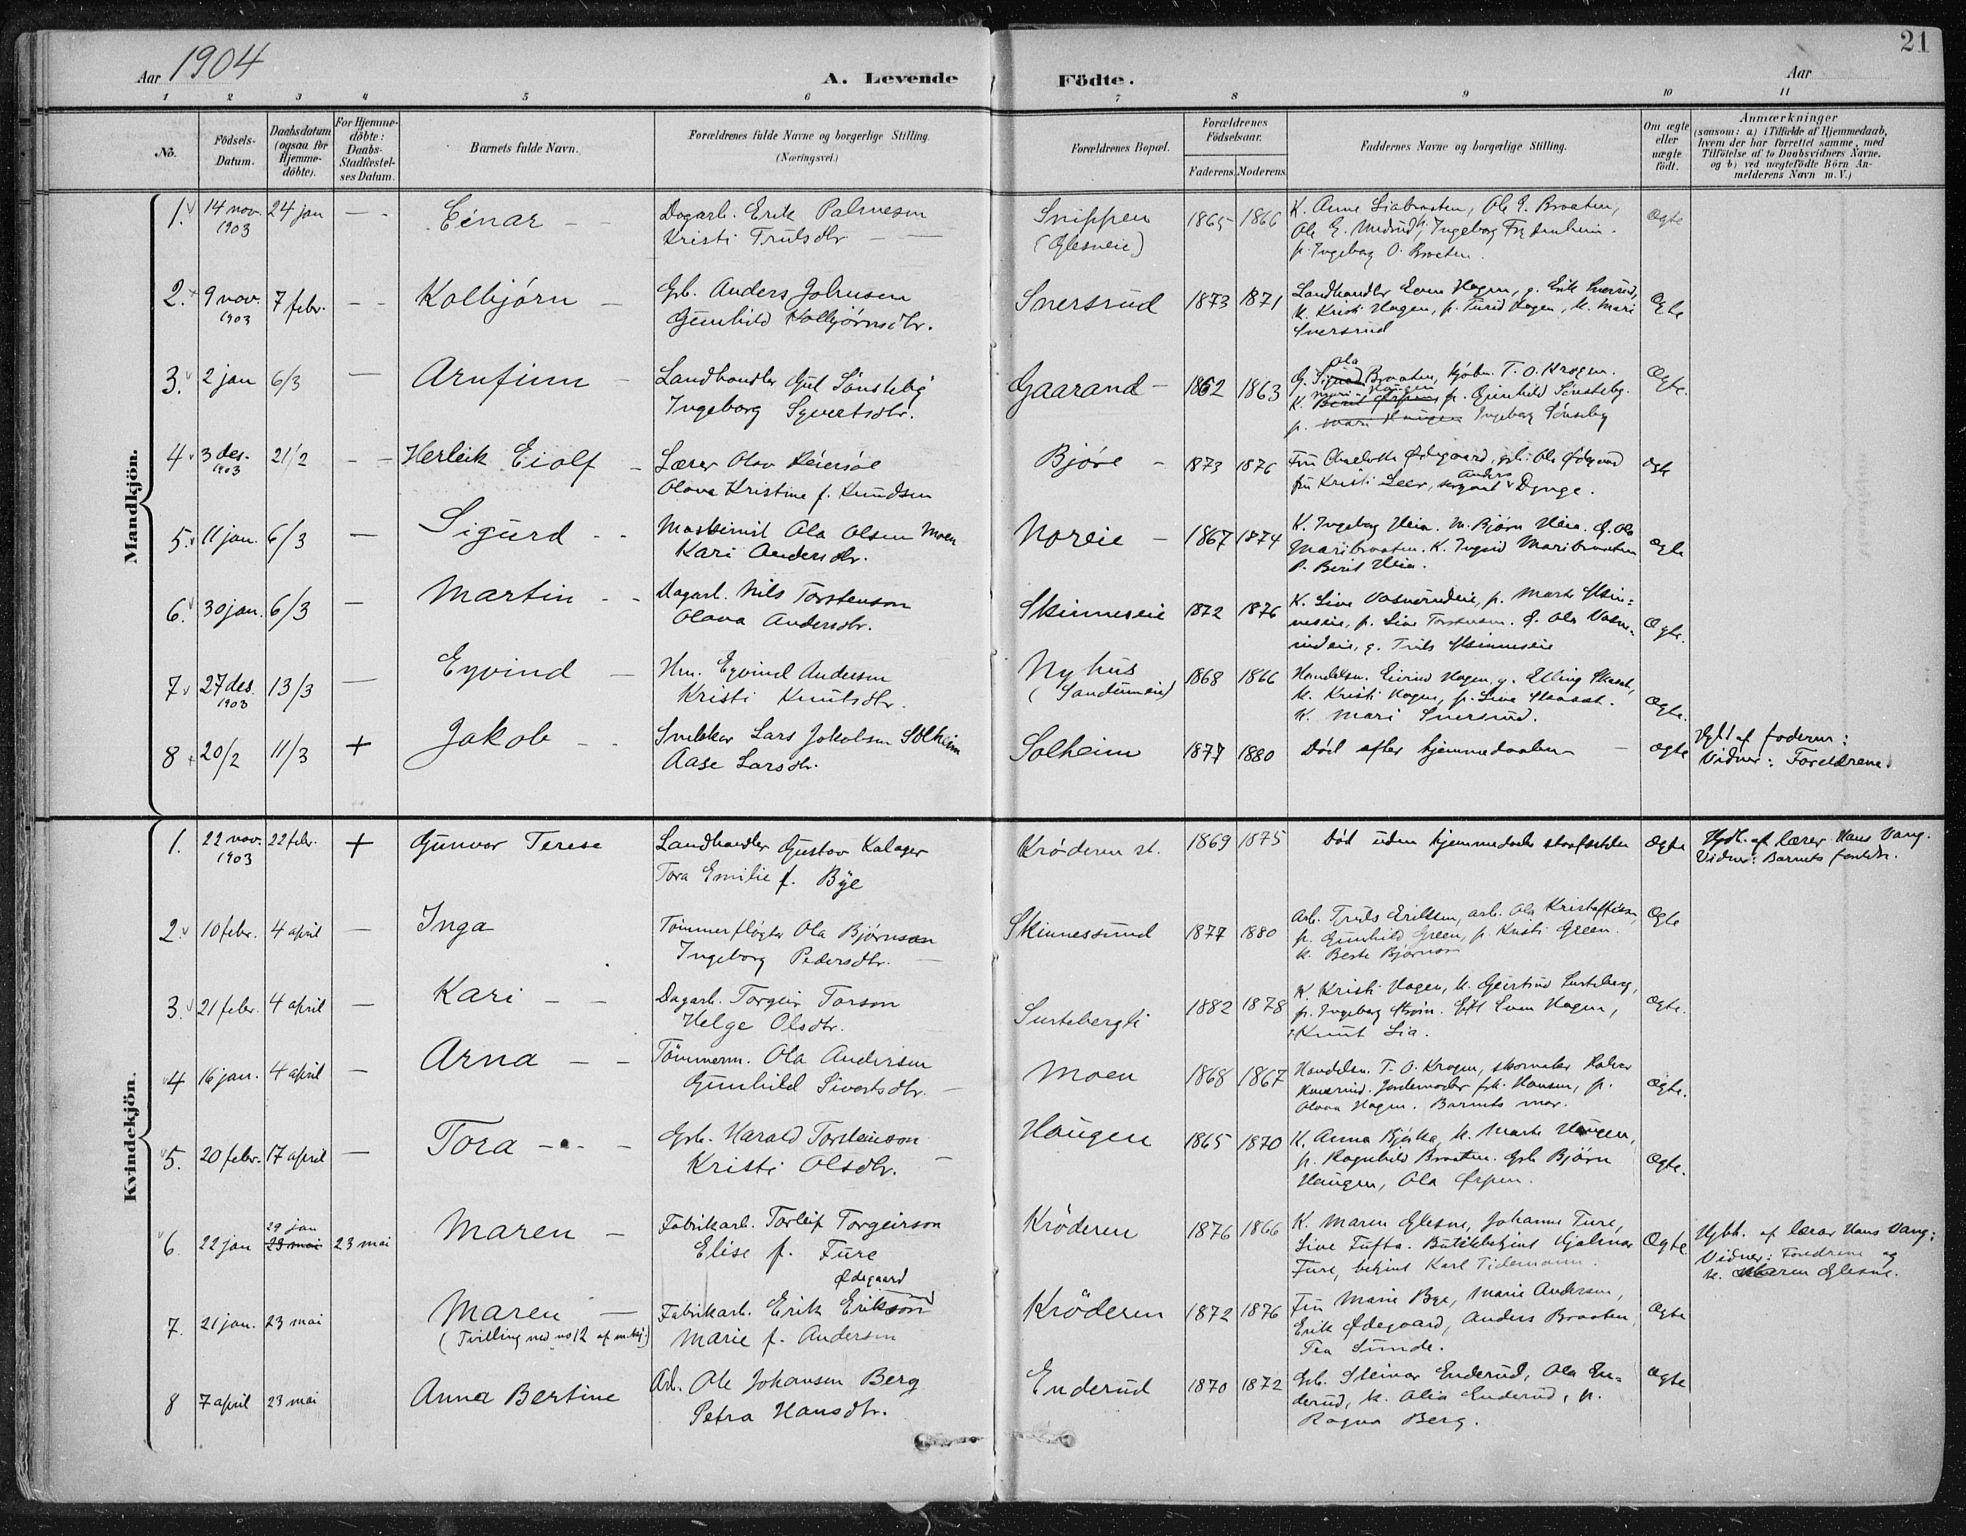 21
Aar 1904
A. Levende
Födte.
Aar
1 2 3 4 5 6 7 8 9 10 11
No.
Födsels-Datum.
Daabsdatum (ogsaa for Hjemme-döbte).
For Hjemme-döbte: Daabs-Stadfæstel-ses Datum.
Barnets fulde Navn.
Forældrenes fulde Navne og borgerlige Stilling.
(Næringsvei.)
Forældrenes Bopæl.
Forældrenes Födselsaar.
Faderens. Moderens.
Faddernes Navne og borgerlige Stilling.
Om ægte eller uægte födt.
Anmærkninger
(saasom: a) i Tilfælde af Hjemmedaab,
hvem der har forrettet samme, med
Tilföielse af to Daabsvidners Navne,
og b) ved uægtefödte Börn An-
melderens Navn m. V.)
Mandkjön.
1. 14 nov. 1903 24 jan — Einar — Dagarb. Erik Palmesen
Kristi Trulsdtr. — Snippen (Glesneie) 1865 1866
K. Anne Liabraaten, Ole E. Braaten,
Ole G. Medrud, Ingeborg
p. Ingeborg O. Braaten. Ægte
2. 9 nov. 1903 7 febr. — Kolbjørn — Gb. Anders Johnsen
Gunhild Kolbjørnsdtr. Snersrud 1873 1871
Landhandler Even Hagen, g. Erik Snersrud,
k. Kristi Hagen, p. Turid Hagen, k. Mari
Snersrud Ægte
3. 2 jan 6/3 — Arnfinn — Landhandler Gul Sønsteby
Ingeborg Syvertsdtr. Gaarand — 1862 1863
G. Ola Braaten, kjøbm. T. O. Krogen.
K. Mari Haugen p. Gunhild Sønsteby.
p. Ingeborg Sønsteby Ægte.
4 3 des. 1903 21/2 — Herleik Eiolf — Lærer Olav
Olava Kristine f. Knudsen Bjøre — 1873 1876
Fru Charlotte Ødegaard, gb. Ole Ødegaard
fru Kristi Leer, sergeant Anders Dynge. Ægte
5. 11 jan. 6/3 — Sigurd — Maskinist Ola Olsen Moen
Kari Andersdtr. Noreie — 1867 1874
K. Ingeborg Heia. M. Bjørn Heia. G. Ole
Maribraaten. K. Ingrid Maribraaten
P. Berit Heia. Ægte
6. 30 jan. 6/3 — Martin — Dagarb. Nils Torstenson
Olava Andersdtr. Skinneseie 1872 1876
K. Live Vasnerudeie, p. Marte Skin-
neseie, p. Live Torstensen. G. Ola Vasne-
rudeie, g. Truls Skinneseie Ægte.
7 27 des. 1903 13/3 — Eyvind — Hm. Eyvind Andersen
Kristi Knutsdtr. Nyhus (Sandumeie) 1868 1866
Handelsm. Eivind Hagen, g. Elling
k. Kristi Hagen, p. Live
K. Mari Snersrud. Ægte.
8 20/2 11/3 + Jakob — Snekker Lars Jakobsen Solheim
Aase Larsdtr. Solheim 1877 1880 Død efter hjemmedaaben — Ægte
Hjd. af faderen:
Vidner: Foreldrene.
Kvindekjön.
1. 22 nov. 1903 22 febr. + Gunvor Terese Landhandler Gustav Kalager
Tora Emilie f. Bye Krøderen st. 1869 1875 Død uden hjemmedaabs stadfestelse Ægte
Hjdb. af lærer Hans Vang.
Vidner: Barnets foreldr.
2. 10 febr. 4 april — Inga Tømmerfløter Ola Bjørnson
Ingeborg Pedersdtr. — Skinnessund 1877 1880
Arb. Truls Eriksen, arb. Ola Kristoffersen,
p. Gunhild Green, p. Kristi Green.
k. Beate Bjørnson Ægte
3. 21 febr. 4 april — Kari — Dagarb. Torgeir Torson
Helge Olsdtr. Surtebergli 1882 1878
K. Kristi Hagen, k. Gjertrud Surteberg,
p. Ingeborg Even Hagen,
Knut Lia. Ægte.
4 16 jan. 4 april — Arna — Tömmerm. Ola Andersen
Gunhild Sivertsdtr. — Moen 1868 1867
Handelsm. T. O. Krogen, skomaker Halvor
Jordemoder frk. Hansen, p.
Olava Hagen. Barnets mor. Ægte.
5. 20 febr. 17 april — Tora — Gb. Harald Torstenson
Kristi Olsdtr. — Haugen 1865 1870
K. Anna Bjørka, k. Marte Haugen,
p. Ragnhild Braaten. Gb. Bjørn
Haugen, Ola Ørpen. Ægte.
6. 22 jan 29 jan 23 mai 23 mai Maren — Fabrikarb. Torleif Torgeirson
Elise f. Fure Krøderen 1876 1866
K. Maren Glesne, Johanne Fure,
Live Tufto. Butikbetjent Hjalmar
Fure, betjent Karl Tidemann. Ægte.
Hjdb. af lærer Hans Vang:
Vidner: Foreldrene og
k. Maren Glesne.
7. 21 jan. 23 mai Maren —
(Tvilling med no 12 af mkj.) Fabrikarb. Erik Erikson Ødegaard
Marie f. Andersen Krøderen 1872 1876
Fru Marie Bye, Marie Andersen,
Erik Ødegaard, Anders Braaten,
Tea Sunde. Ægte
8 7 april 23 mai Anna Bertine Arb. Ole Johansen Berg
Petra Hansdtr. Enderud 1870 1872
Gb. Steinar Enderud, Ola En-
derud, k. Olia Enderud, p.
Ragna Berg. Ægte